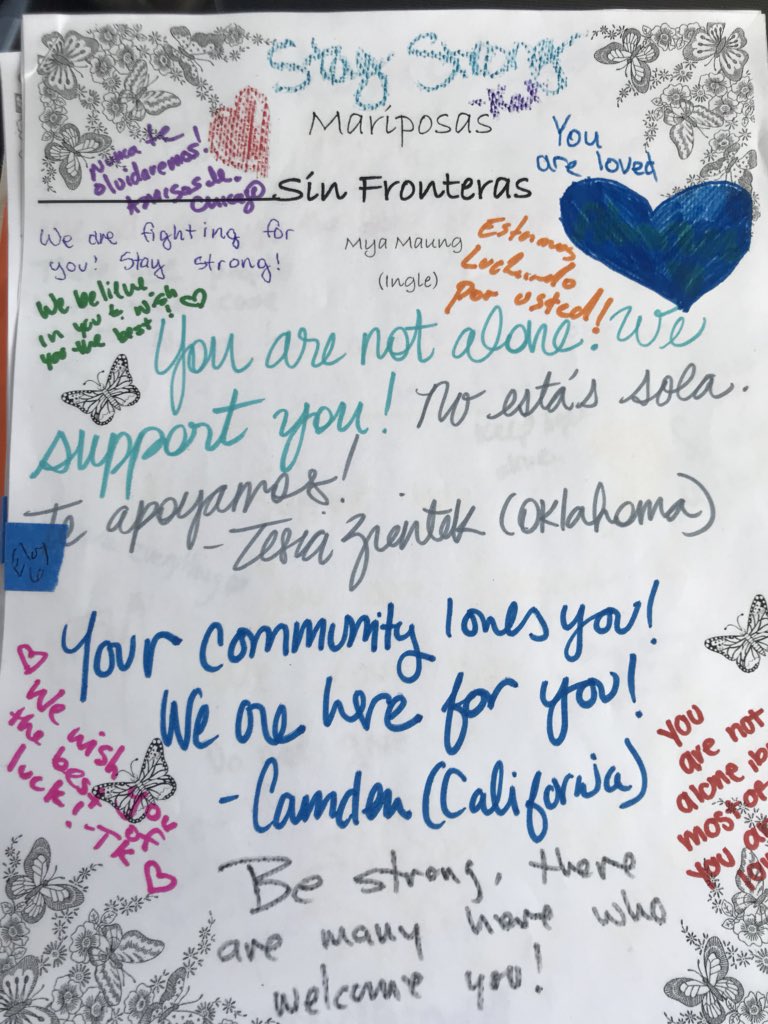 Stay Strong
-Kat
Mariposas
Sin Fronteras
Mya Maung
(Ingle)
Nunca te
olvidaremos!
Amigas de
You
are loved
We are fighting for
you! Stay strong!
Estamos
Luchando
por usted!
We believe
in you & wish
you the best!
You are not alone! We
support you! No estás sola.
Te apoyamos!
-Tesia Zientek (Oklahoma)
Eloy
6
Your community loves you!
We are here for you!
-Camden (California)
We wish you
the best of
luck! -TK
You
are not
alone
most of
You a
Be strong, there
are many here who
welcome you!